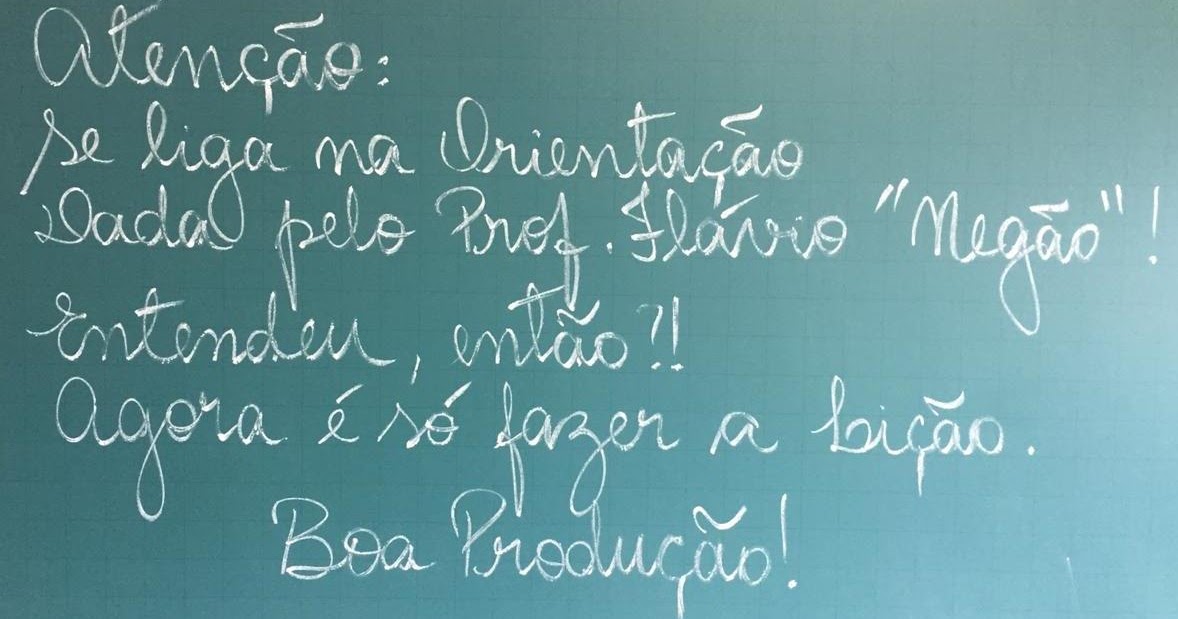 Atenção:
Se liga na Orientação
Dada pelo Prof. Flávio "Negão"!
Entendeu, então?!!
Agora é só fazer a Lição.
Boa Produção!